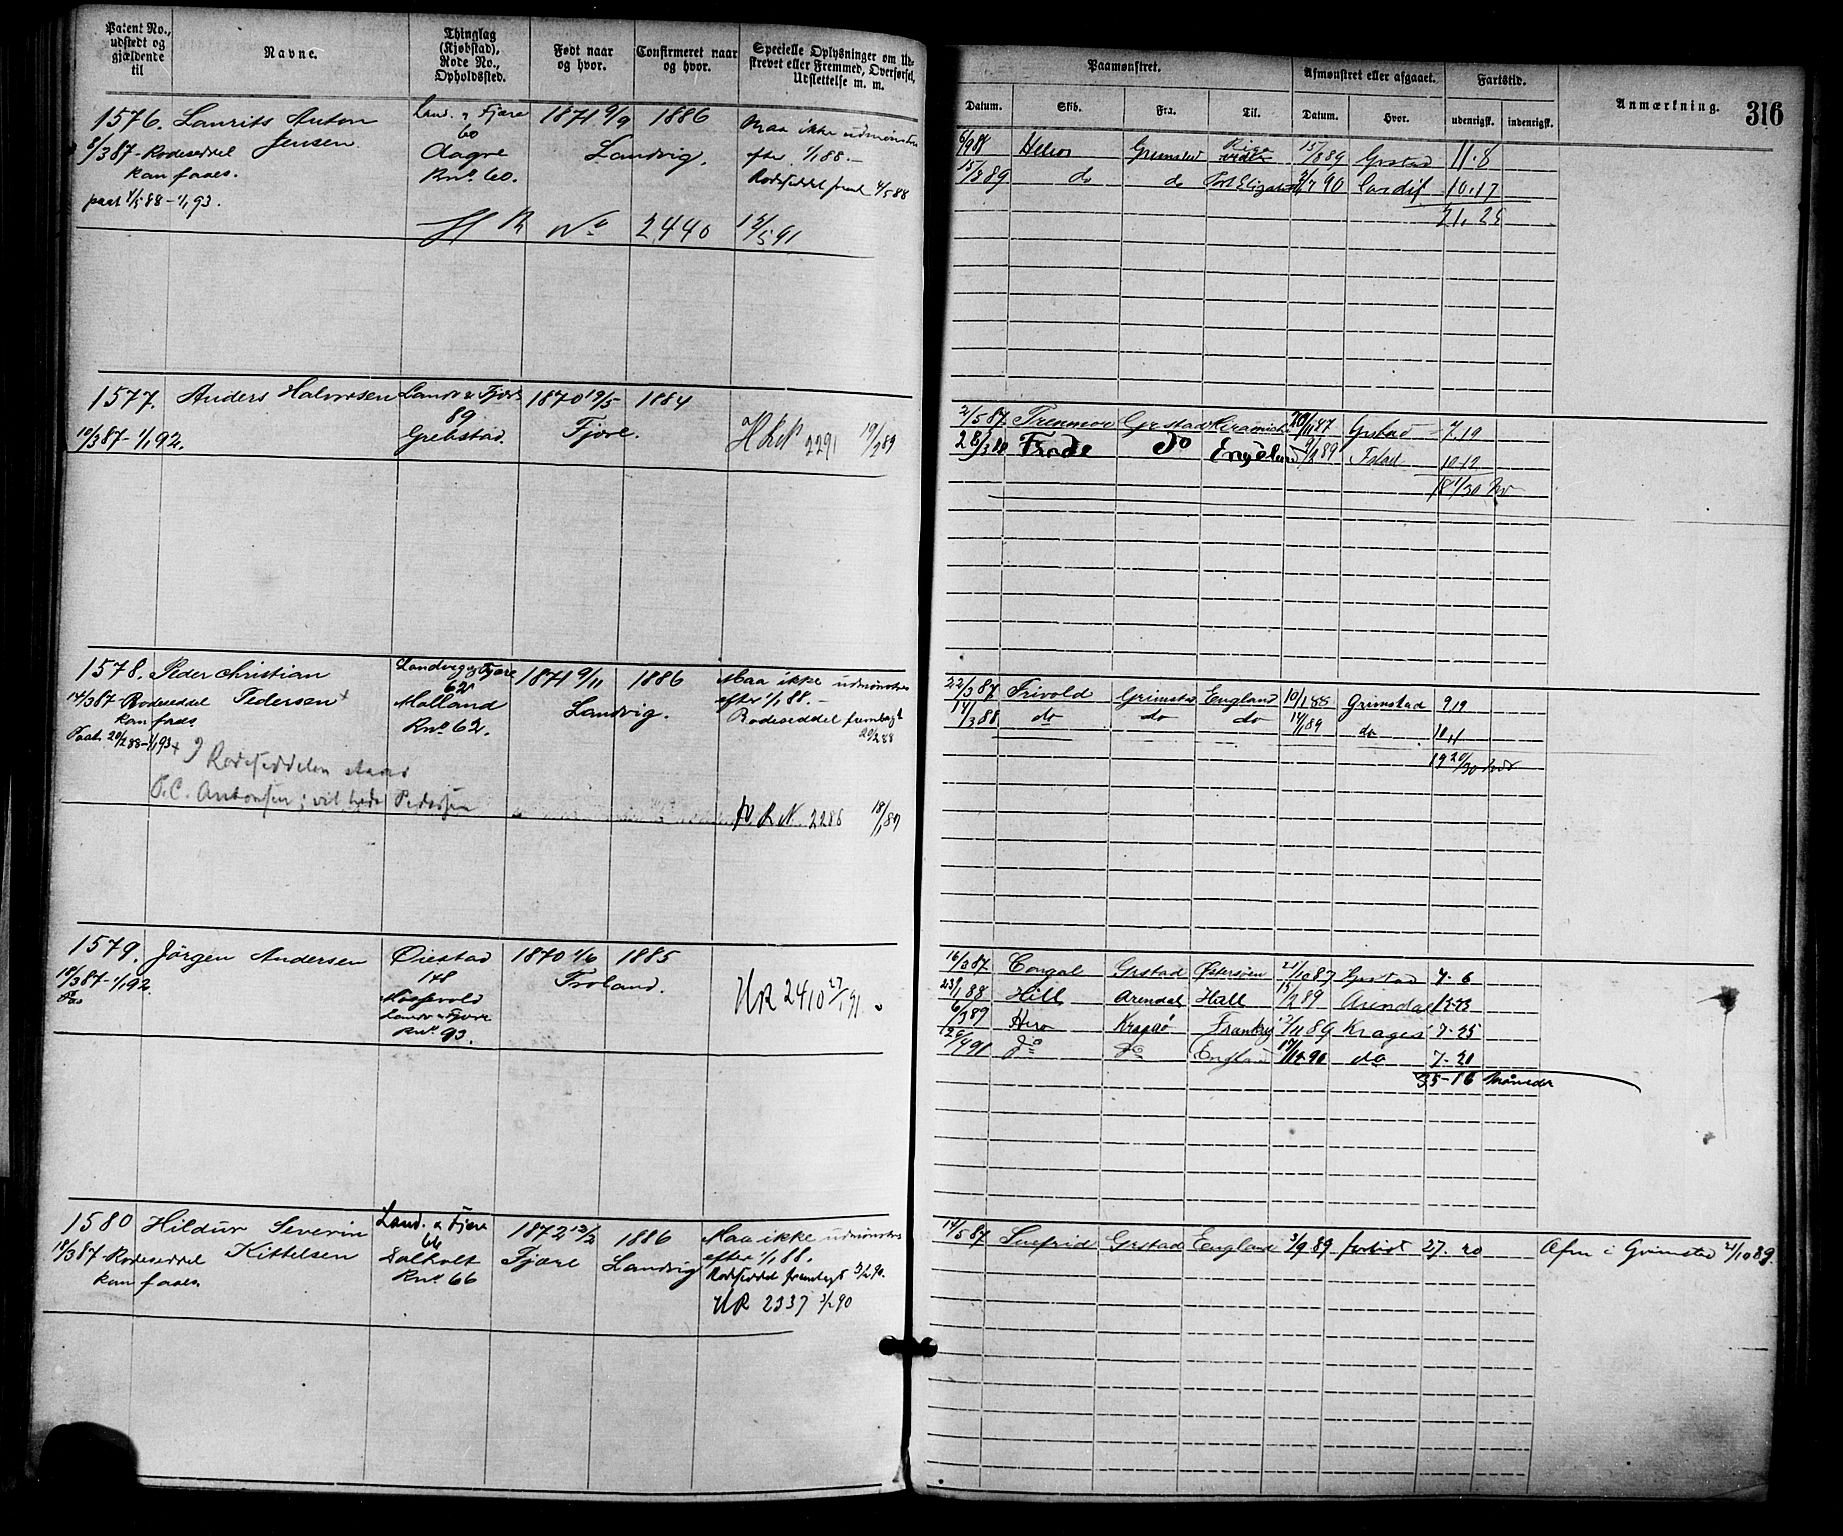 Patent No., udstedt og gjældende til
Navne.
Thinglag (Kjøbstad), Rode No., Opholdssted.
Født naar og hvor.
Confirmeret naar og hvor.
Specielle Oplysninger om Udstrevet eller Fremmed, Overførsel, Udslettelse m. m.
Paamønstret.
Afmønstret eller afgaaet.
Fartstid.
Anmærkning.
316
Datum.
Skib.
Fra.
Til.
Datum.
Hvor.
udenrigsk.
indenrigsk.
1576. Laurits Anton Land. & Fjære 1871 9/9 1886 Maa ikke udmønstres
8/387 - Rodeseddel Jensen 60 Landvig. efter 1/1 88. -
kan faaes. Aagre Rodeseddel freml. 4/5 88
paat. 4/5 88 - 1/1 93. Rno. 60.
HR No 2440 15/5 91
6/9 87 Helios Grimstad Riga 15/889 Grstad 11.8
15/889 do do Port Elizabeth 90 Cardif 10.17
21.25
1577. Anders Halvorsen Landv & Fjære 1870 19/5 1884
10/387 - 1/1 92. 89 Fjære.
Grebstad. HRN 2291 19/2 89
2/5 87 Trenmor Grstad 20/11 87 Grstad 7 19
28/3 88 Frode Do England 9/2 89 Fstad 10-12
18 1/30
1578. Peder Christian Landvig og Fjære 1871 9/11 1886 Maa ikke udmønstres
14/387 Rodeseddel Pedersen + 62 Landvig. efter 1/1 88. -
kan faaes Molland Rodeseddel fremlagt
Paat. 20/2 88 - 1/1 93 + Rno. 62. 20/2 88
I Rodeseddelen staar
P. C. Antonsen; vil hede Pedersen
HRN. 2286 18/1 89
22/3 87 Frivold Grimstad England 10/1 88 Grimstad 9 19
17/3 88 do do do 14/1 89 do 10 11
19 20/30
1579. Jörgen Andersen Öiestad 1870 1/6 1885
18/387 - 1/1 92. 148 Froland.
Landv & Fjære
Rno. 93.
HR 2410 27/1 91
16/3 87 Grstad Østersöen 21/10 87 Grstad 7-6
23/1 88 Hill Arendal Hull 15/2 89 Arendal 13-23
6/3 89 Hero Kragerö Frankrig 2/11 89 Kragerö 7-25
do do England 90 do 7-20
35-16 Måneder
1580 Hildur Severin Land. & Fjære 1872 12/2 1886 Maa ikke udmønstres
18/387 - Rodeseddel Kittelsen 66 Fjære Landvig efter 1/1 88.
kan faaes Dalholt Rodeseddel fremlagt 3/2 90.
Rno. 66
HR 2337 3/2 90
14/5 87 Grstad England 3/9 89 forlist 27. 20 Afm i Grimstad 21/10 89.